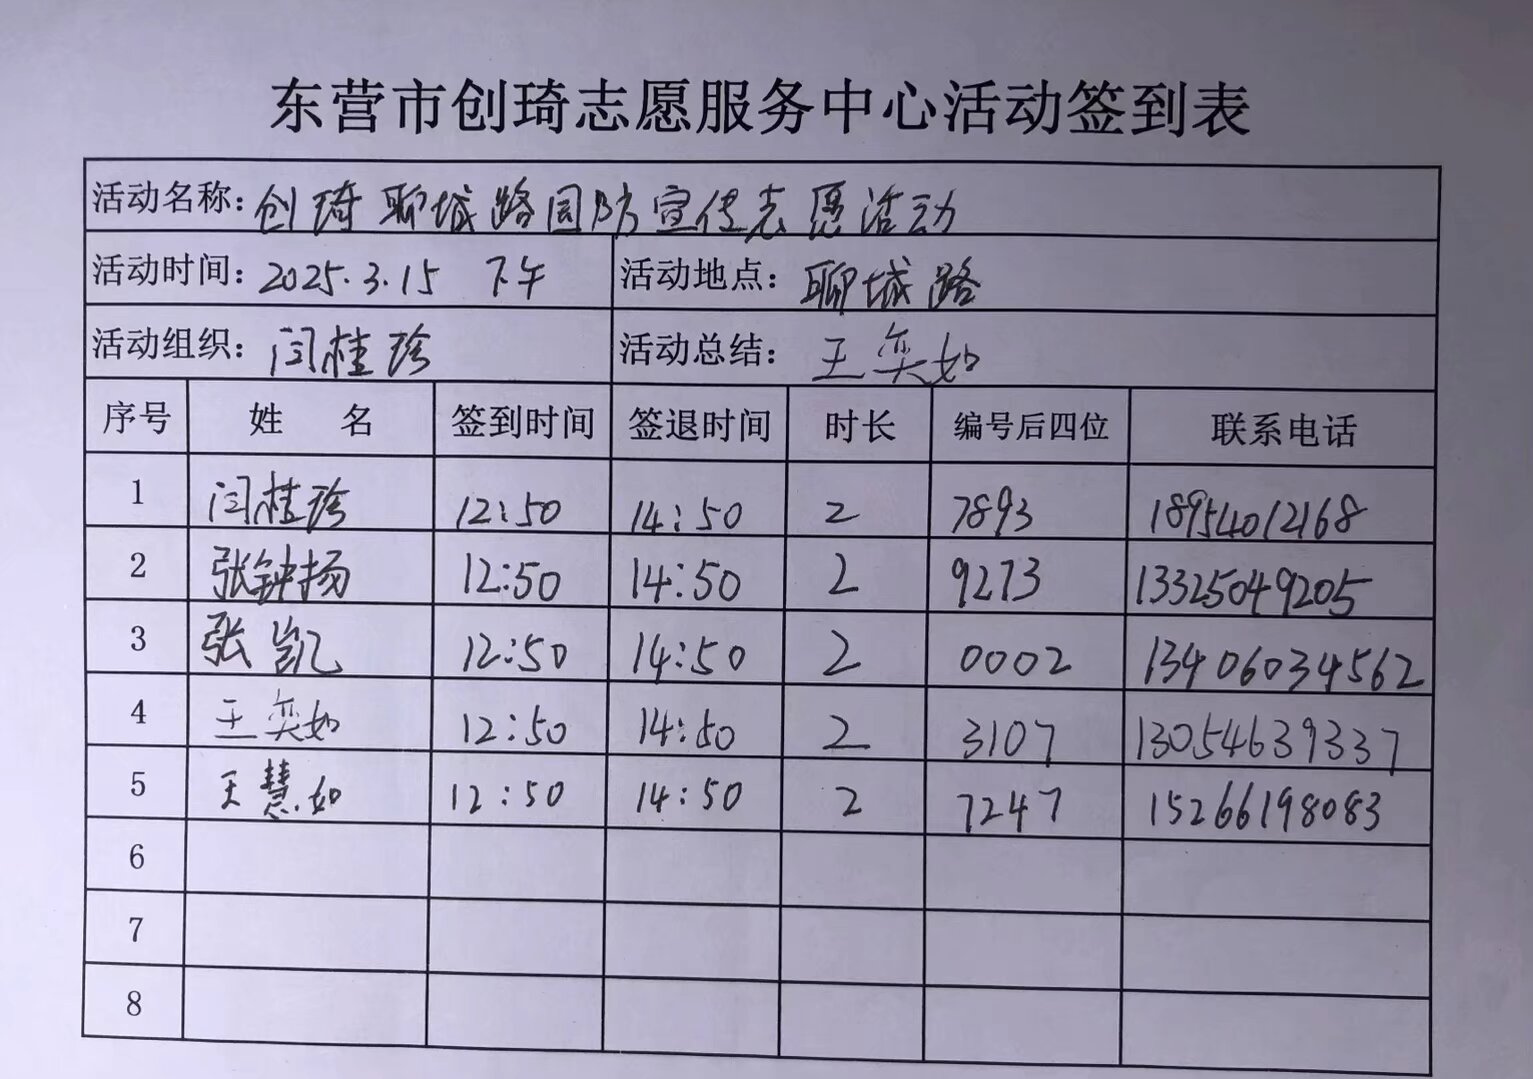 东营市创琦志愿服务中心活动签到表
活动名称：创琦聊城路国防宣传志愿活动
活动时间：2025.3.15 下午 活动地点：聊城路
活动组织：闫桂珍 活动总结：王奕如
序号 姓 名 签到时间 签退时间 时长 编号后四位 联系电话
1 闫桂珍 12:50 14:50 2 7893 18954012168
2 张钟扬 12:50 14:50 2 9273 13325049205
3 张凯 12:50 14:50 2 0002 13406034562
4 王奕如 12:50 14:50 2 3107 13054639337
5 王慧如 12:50 14:50 2 7247 15266198083
6
7
8